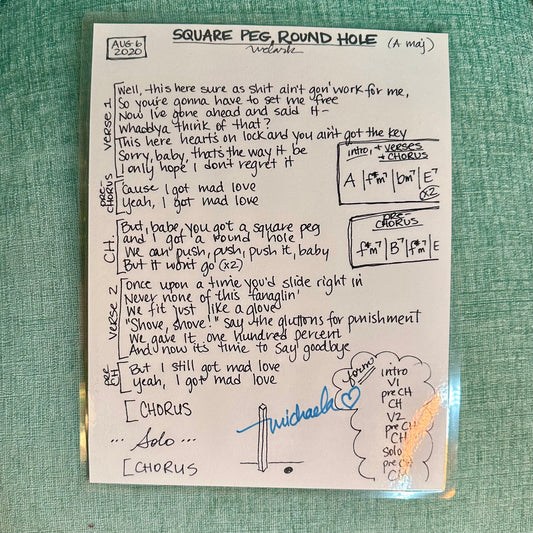 AUG 6
2020
SQUARE PEG, ROUND HOLE (A maj)
VERSE 1
Well, this here sure as shit ain't gon' work for me,
So you're gonna have to set me free
Now I've gone ahead and said it-
Whaddya think of that?
This here hearts on lock and you ain't got the key
Sorry, baby, that's the way it be
I only hope I don't regret it
PRE-CHORUS
'Cause I got mad love
Yeah, I got mad love
CH.
But, babe, you got a square peg
and I got a round hole
We can push, push, push it, baby
But it won't go (x2)
VERSE 2
Once upon a time you'd slide right in
Never none of this tanglin'
We fit just like a glove
"Shove, shove!" say the gluttons for punishment
We gave it one hundred percent
And now it's time to say goodbye
PRE CH
But I still got mad love
Yeah, I got mad love
[CHORUS
... Solo ...
[CHORUS
intro, + VERSES
+ CHORUS
A | f#m7 | bm7 | E7
(x2)
PRE-CHORUS
f#m7 | B7 | f#m7 | E
form
intro
V1
pre CH
CH
V2
pre CH
CH
solo
pre CH
CH
michaela ♡